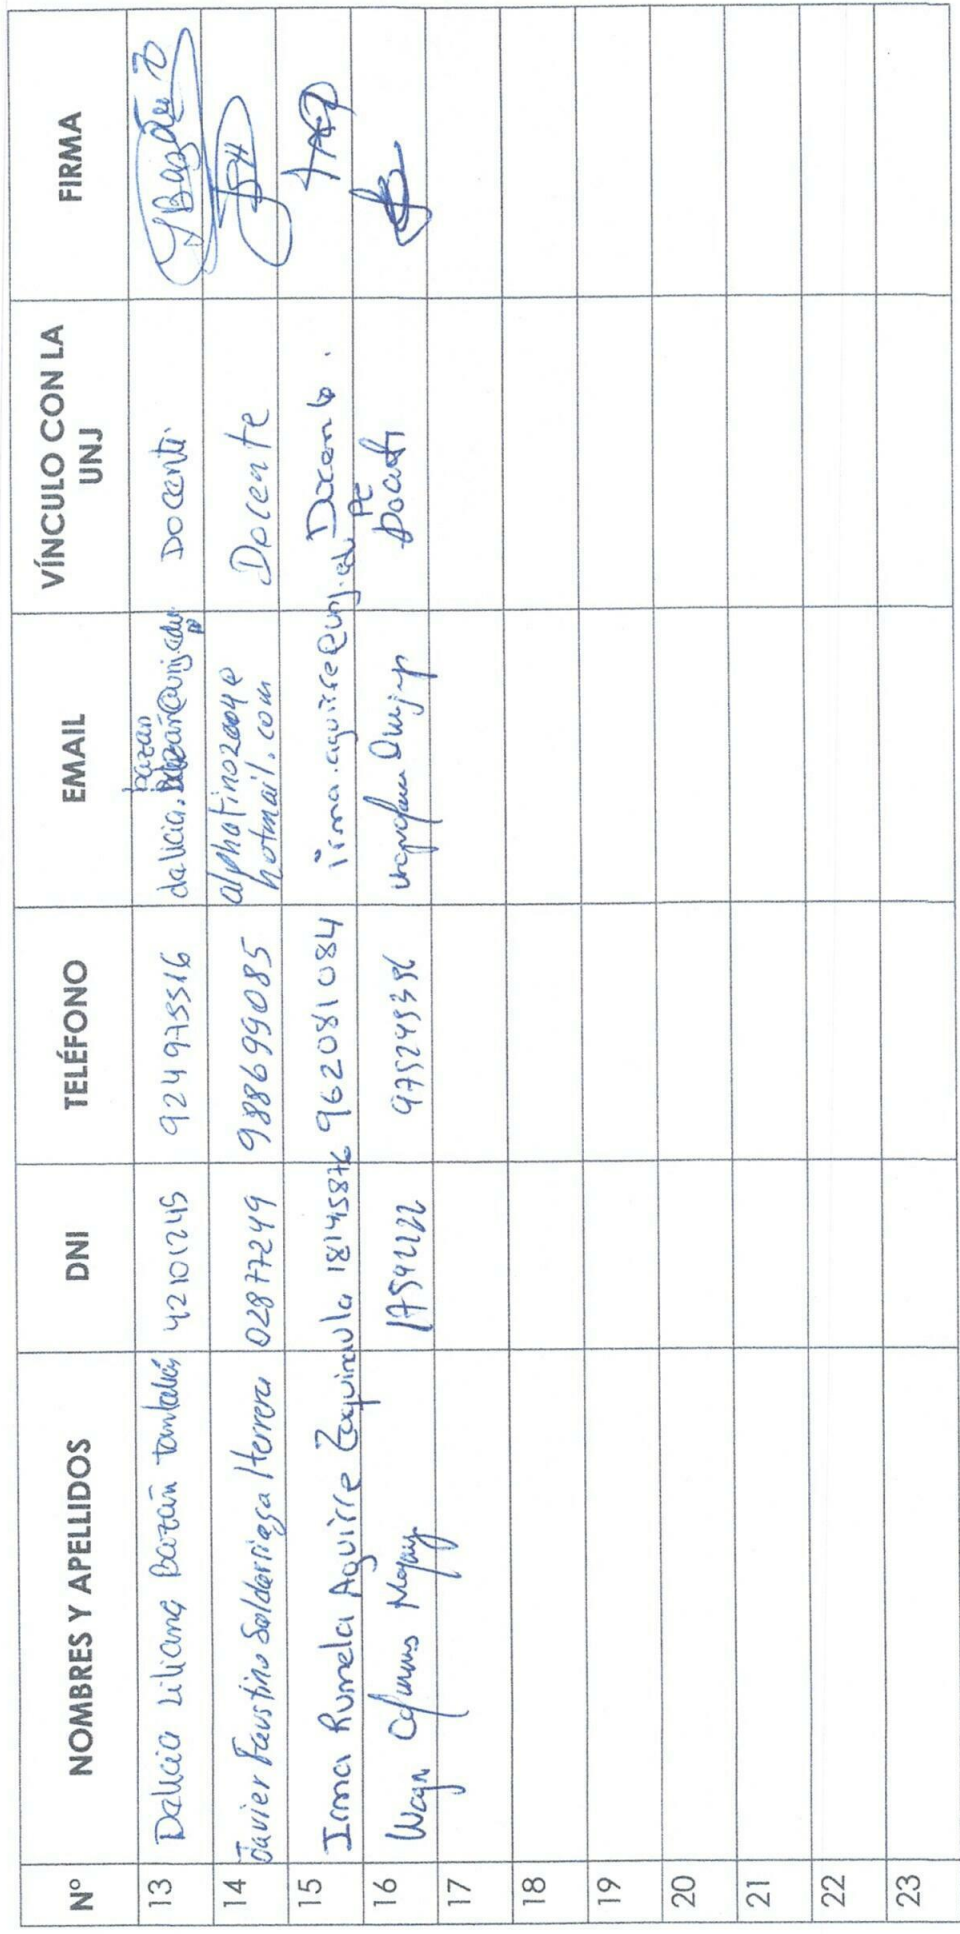 Nº NOMBRES Y APELLIDOS DNI TELÉFONO EMAIL VÍNCULO CON LA UNJ FIRMA
13 Dalicia Liliana Bazán Tantaleán 42101245 924975516 dalicia.bazan@unj.edu.p Docente
14 Javier Faustino Saldarriaga Herrera 02877249 988699085 alphatino2004@hotmail.com Docente
15 Irma Rumela Aguirre Zaquinaula 18145876 962081084 irma.aguirre@unj.edu.pe Docente.
16 17542122 975249356 Docente
17
18
19
20
21
22
23